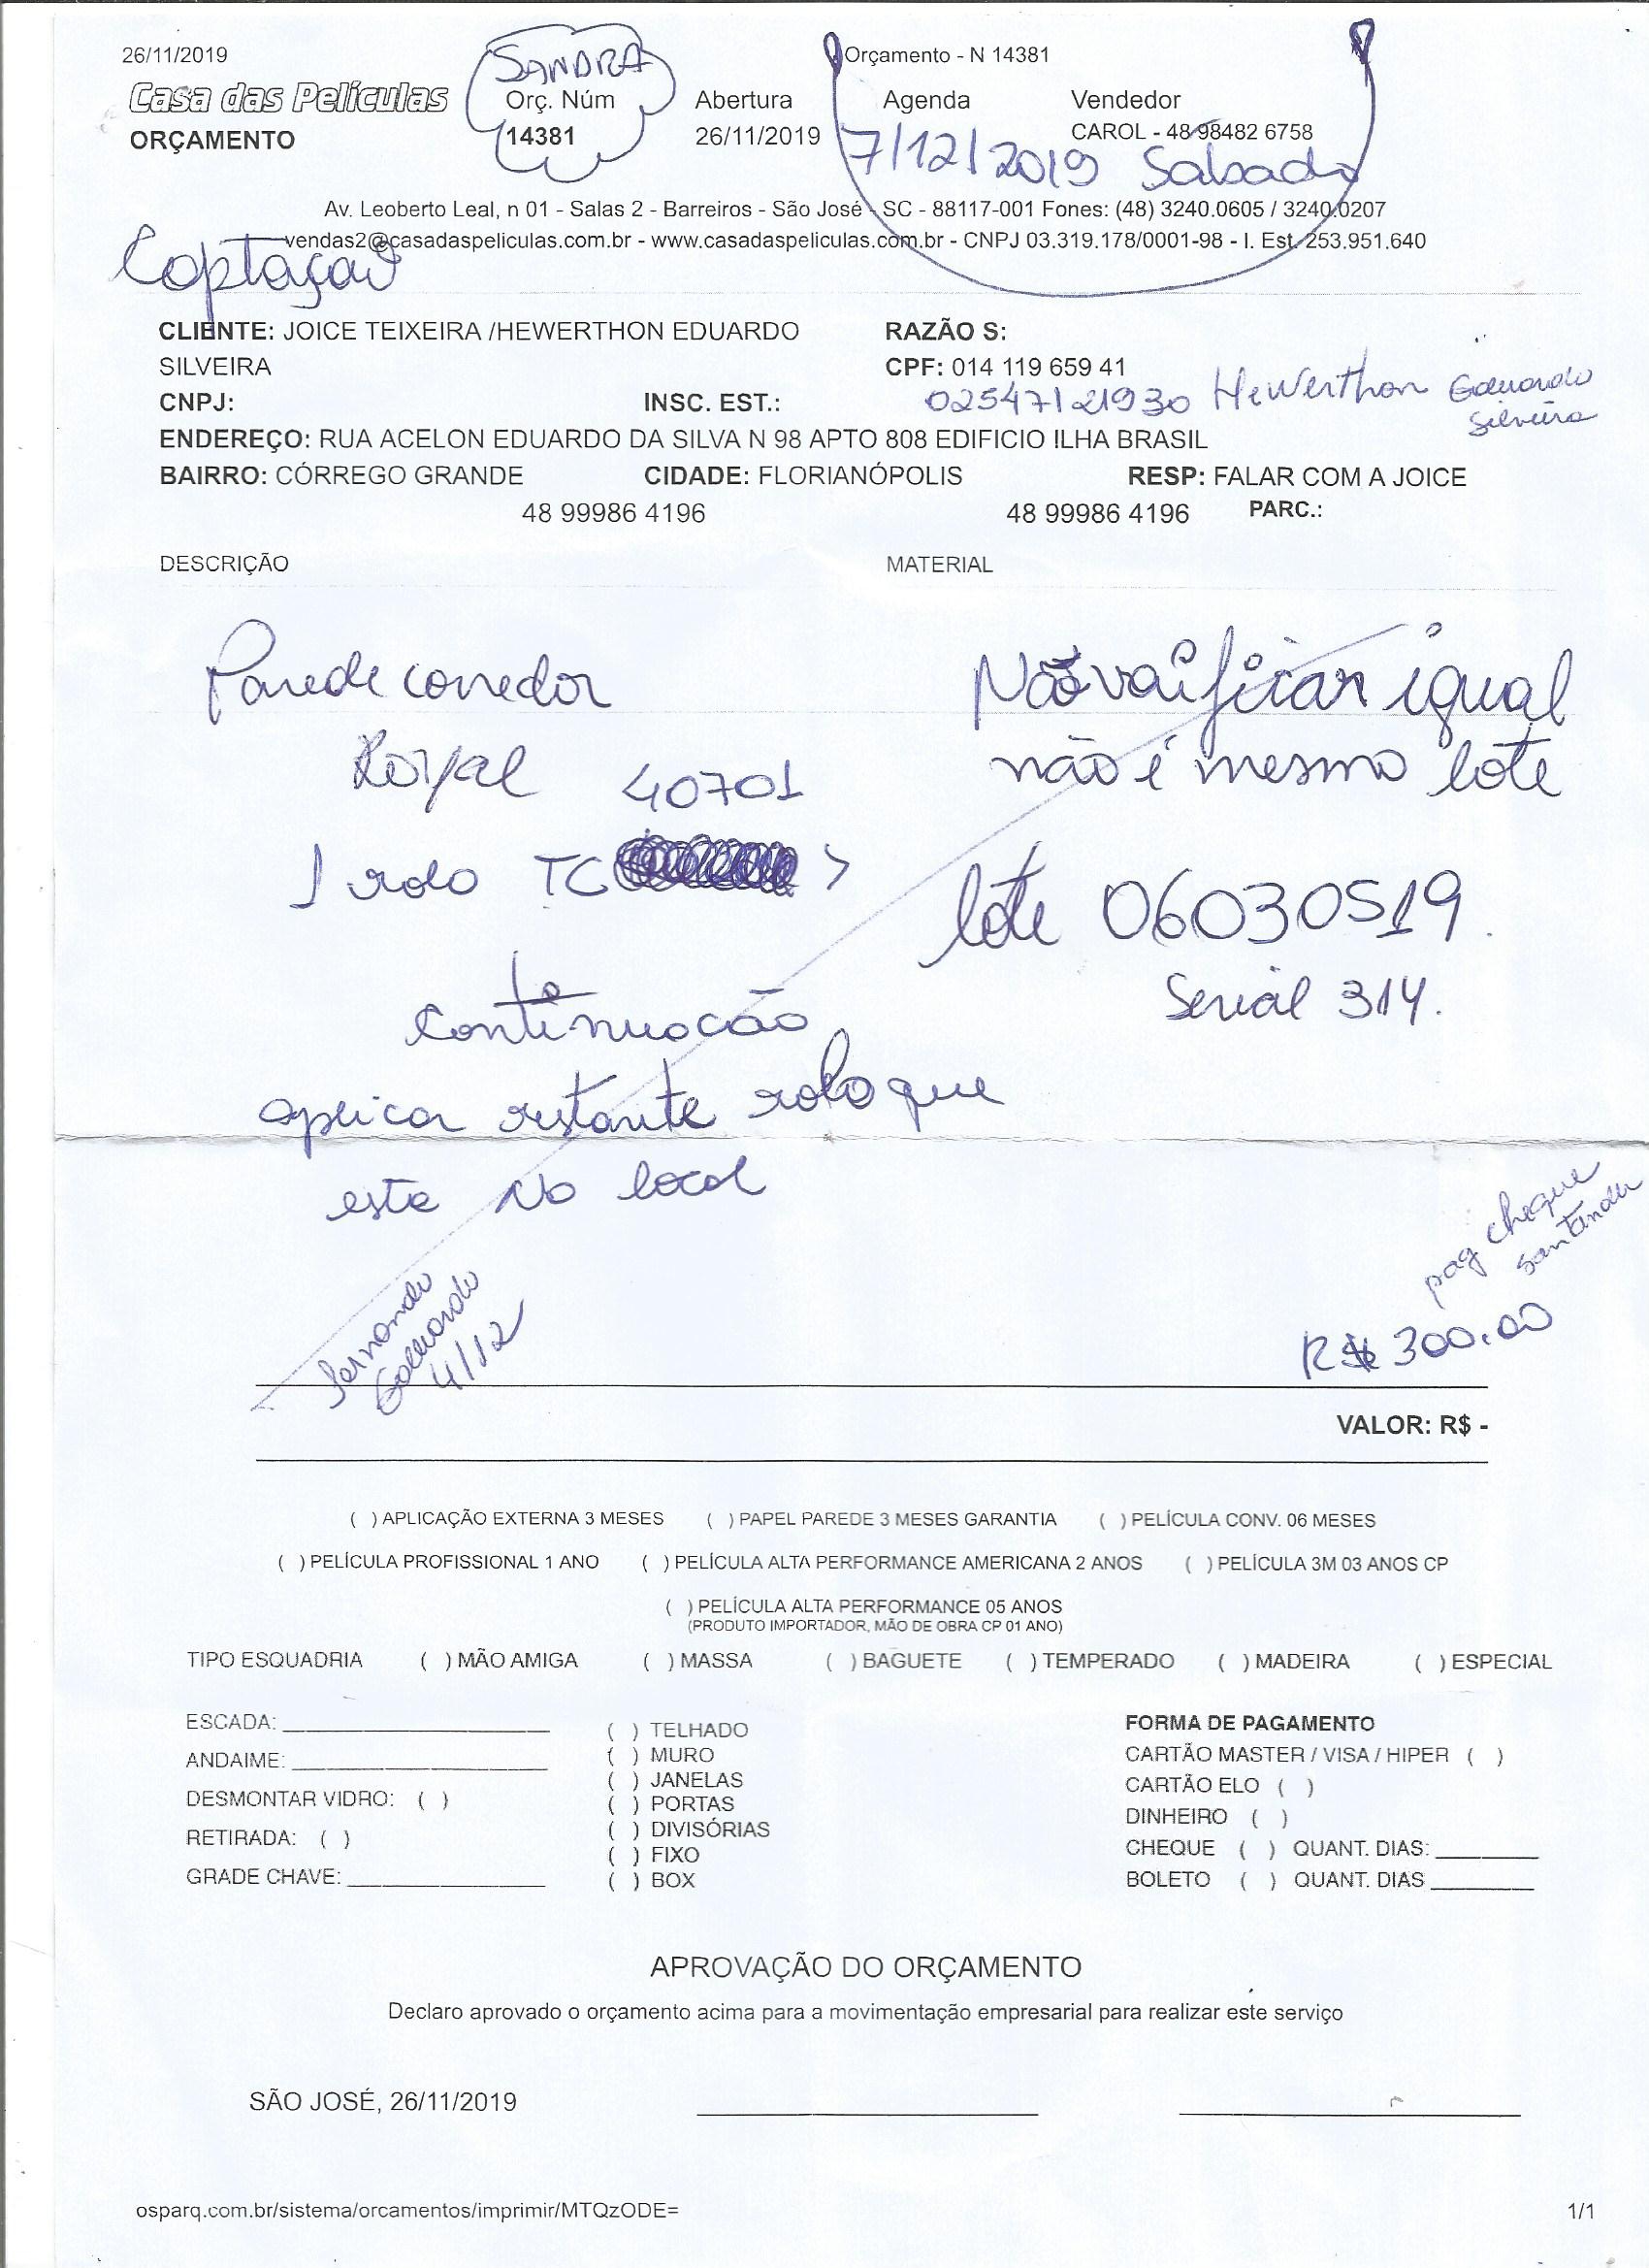 26/11/2019
SANDRA
Orçamento - N 14381
Casa das Películas
Orç. Núm
Abertura
Agenda
Vendedor
ORÇAMENTO
14381
26/11/2019
CAROL - 48 98482 6758
7/12/2019 Sábado
Av. Leoberto Leal, n 01 - Salas 2 - Barreiros - São José - SC - 88117-001 Fones: (48) 3240.0605 / 3240.0207
vendas2@casadaspeliculas.com.br - www.casadaspeliculas.com.br - CNPJ 03.319.178/0001-98 - I. Est. 253.951.640
Coptaçao
CLIENTE: JOICE TEIXEIRA /HEWERTHON EDUARDO
RAZÃO S:
SILVEIRA
CPF: 014 119 659 41
CNPJ:
INSC. EST.:
02547121930 Hewerthon Eduardo
Silveira
ENDEREÇO: RUA ACELON EDUARDO DA SILVA N 98 APTO 808 EDIFICIO ILHA BRASIL
BAIRRO: CÓRREGO GRANDE
CIDADE: FLORIANÓPOLIS
RESP: FALAR COM A JOICE
48 99986 4196
48 99986 4196
PARC.:
DESCRIÇÃO
MATERIAL
Parede corredor
Não vai ficar igual
Royal 40701
não é mesmo lote
1 rolo TC
lote 06030519
Serial 314.
continuação
aplicar restante rolo que
esta No local
pag cheque
santander
Fernando
Eduardo
4/12
R$ 300.00
VALOR: R$ -
( ) APLICAÇÃO EXTERNA 3 MESES ( ) PAPEL PAREDE 3 MESES GARANTIA ( ) PELÍCULA CONV. 06 MESES
( ) PELÍCULA PROFISSIONAL 1 ANO ( ) PELÍCULA ALTA PERFORMANCE AMERICANA 2 ANOS ( ) PELÍCULA 3M 03 ANOS CP
( ) PELÍCULA ALTA PERFORMANCE 05 ANOS
(PRODUTO IMPORTADOR, MÃO DE OBRA CP 01 ANO)
TIPO ESQUADRIA ( ) MÃO AMIGA ( ) MASSA ( ) BAGUETE ( ) TEMPERADO ( ) MADEIRA ( ) ESPECIAL
ESCADA:
ANDAIME:
DESMONTAR VIDRO: ( )
RETIRADA: ( )
GRADE CHAVE:
( ) TELHADO
( ) MURO
( ) JANELAS
( ) PORTAS
( ) DIVISÓRIAS
( ) FIXO
( ) BOX
FORMA DE PAGAMENTO
CARTÃO MASTER / VISA / HIPER ( )
CARTÃO ELO ( )
DINHEIRO ( )
CHEQUE ( ) QUANT. DIAS:
BOLETO ( ) QUANT. DIAS
APROVAÇÃO DO ORÇAMENTO
Declaro aprovado o orçamento acima para a movimentação empresarial para realizar este serviço
SÃO JOSÉ, 26/11/2019
osparq.com.br/sistema/orcamentos/imprimir/MTQzODE=
1/1